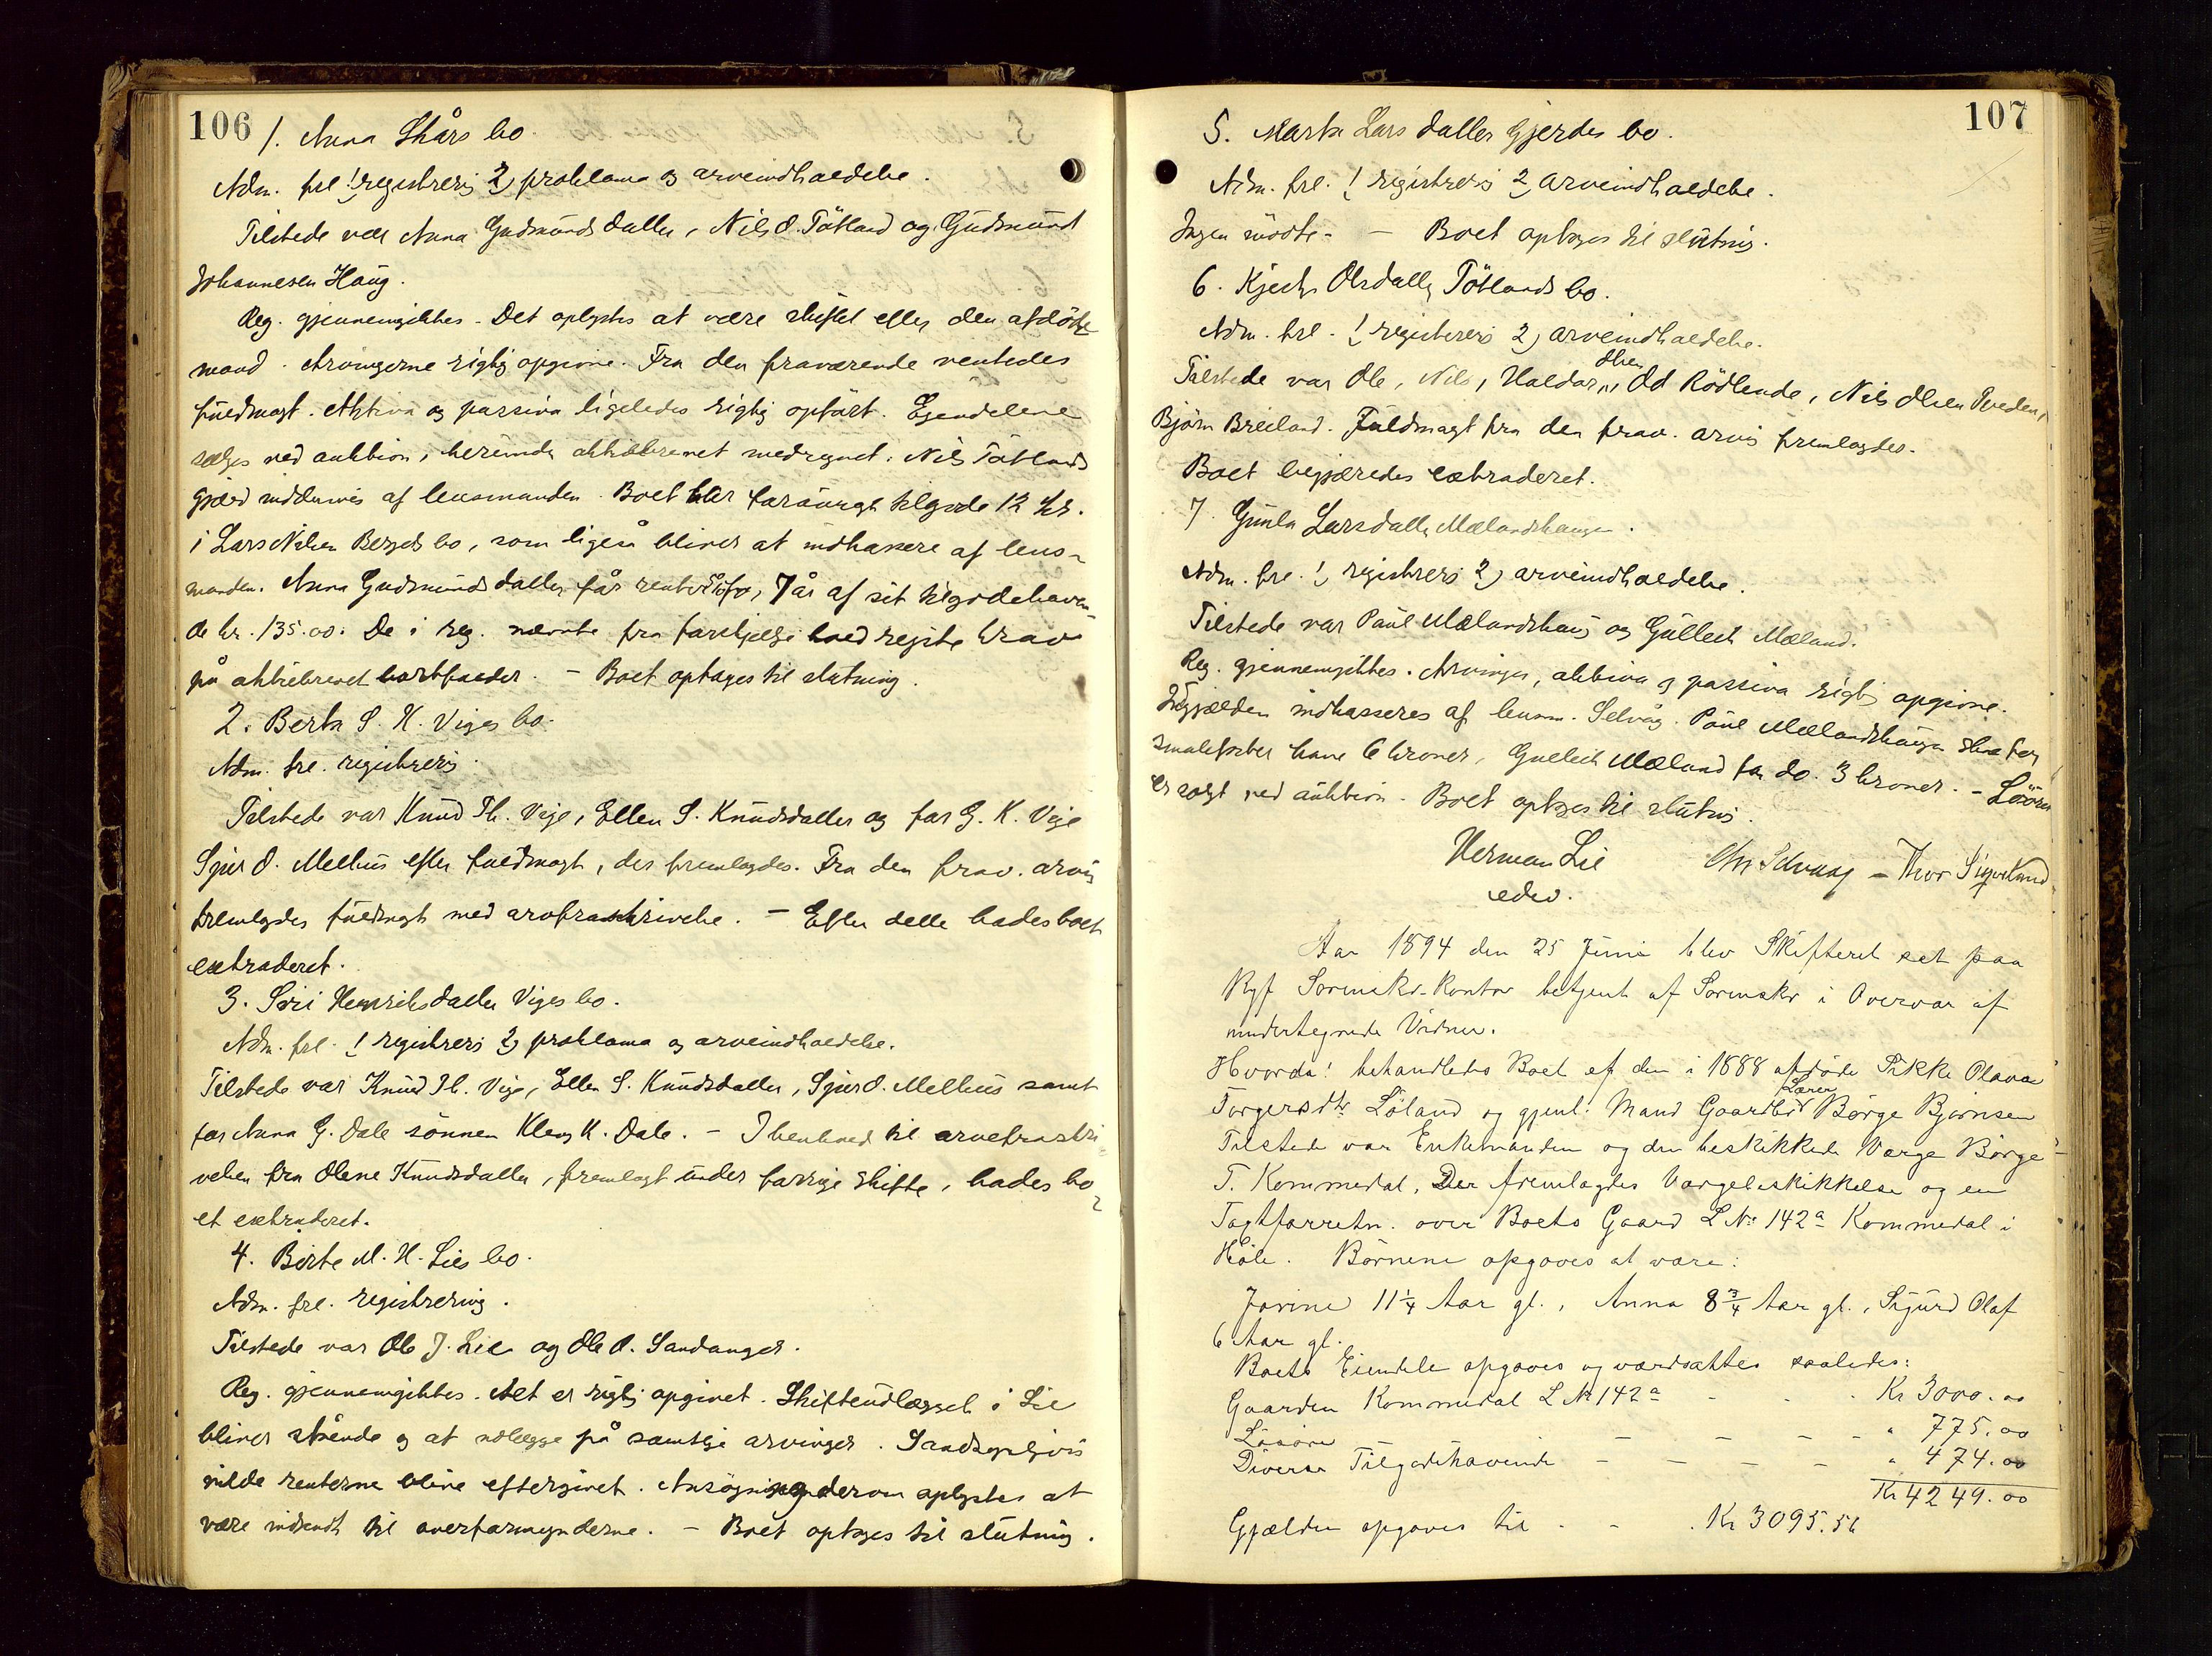 106
1. Anna Skårs bo.
Adm. frl. 1) registrering 2) proklama og arveindkaldelse.
Tilstede var Anna Gudmundsdatter, Nils O. Tøtland og Gudmund
Johannesen Haug.
Reg. gjennemgikkes. Det oplystes at være skiftet efter den afdøde
mand. Arvingerne rigtig opgivne. Fra den fraværende ventedes
fuldmagt. Aktiva og passiva ligeledes rigtig opført. Eiendelene
sælges ved auktion, herunder aktiebrevet medregnet. Nils Tøtlands
gjæld inddrives af lensmanden. Boet har forøvrigt tilgode 12 kr.
i Lars Nilsen Berges bo, som ligeså bliver at indkassere af lens-
manden. Anna Gudmundsdatter får renter 7 år af sit tilgodehaven
de kr. 135.00. De i reg. nævnte fra forskjellige hold rejste krav
på aktiebrevet bortfalder. - Boet optages til slutning.
2. Berta S. K. Viges bo.
Adm. frl. registrering.
Tilstede var Knud Th. Vige, Ellen S. Knudsdatter og for G. K. Vige
Sjur O. Melhus efter fuldmagt, der fremlagdes. Fra den frav. arving
fremlagdes fuldmagt med arvefraskrivelse. - Efter dette hades boet
extraderet.
3. Siri Henriksdatter Viges bo.
Adm. frl. 1) registrering 2) proklama og arveindkaldelse.
Tilstede var Knud Th. Vige, Ellen S. Knudsdatter, Sjur O. Melhus samt
for Anna G. Dale sønnen Klem K. Dale. - I henhold til arvefraskri
velsen fra Olene Knudsdatter, fremlagt under forrige skifte, hades bo
et extraderet.
4. Birte M. H. Lies bo.
Adm. frl. registrering.
Tilstede var Ole J. Lie og Ole A. Sandanger.
Reg. gjennemgikkes. Alt er rigtig opgivet. Skifteudlægget i Lie
bliver stående og at udlægge på samtlige arvinger. Sandsynligvis
vilde renterne blive eftergivet. Ansøgning derom oplystes at
være indsendt til overformynderne. - Boet optages til slutning.
107
5. Marta Larsdatter Gjerdes bo.
Adm. frl. 1) registrering 2) arveindkaldelse.
Ingen mødte. - Boet optages til slutning.
6. Kjersti Olsdatter Tøtlands bo.
Adm. frl. 1) registrering 2) arveindkaldelse.
Olsen
Tilstede var Ole, Nils, Haldor, Od Rødlende, Nils Olsen Tveden,
Bjørn Breiland. Fuldmagt fra den frav. arving fremlagdes.
Boet begjæredes extraderet.
7. Gunla Larsdatter Mælandshaugen.
Adm. frl. 1) registrering 2) arveindkaldelse.
Tilstede var Paul Mælandshaug og Gullech Mæland.
Reg. gjennemgikkes. Arvinger, aktiva og passiva rigtig opgivne.
Indgjælden indkasseres af lensm. Selvåg. Paul Mælandshaugen skal for
have 6 kroner, Gullech Mæland for do. 3 kroner. - Løsøren
er solgt ved auktion. Boet optages til slutning.
Herman Lie Chr Selvaag - Thor Sigveland
edsv.
Aar 1894 den 25 Juni blev Skifteret sat paa
Ryf Sorenskr.-Kontor betjent af Sorenskr i Overvær af
undertegnede Vidner.
Hvorda: behandledes Boet ef den i 1888 afdøde Sikke Olava
Lærer
Torgersdtr Løland og gjenl. Mand Gaardbr Børge Bjørnsen
Tilstede var Enkemanden og den beskikkede Værge Børge
T. Kommedal. Der fremlagdes Værgebeskikkelse og en
Taxtforretn. over Boets Gaard L.No 142a Kommedal i
Høle. Børnene opgaves at være:
Jorine 11 1/4 Aar gl., Anna 8 3/4 Aar gl., Sigurd Olaf
6 Aar gl.
Boets Eiendele opgaves og værdsattes saaledes:
Gaarden Kommedal L.No 142a - - Kr 3000.00
Løsøre - - - - " 775.00
Diverse Tilgodehavende - - - - " 474.00
Kr 4249.00
Gjælden opgaves til - - . Kr 3095.56